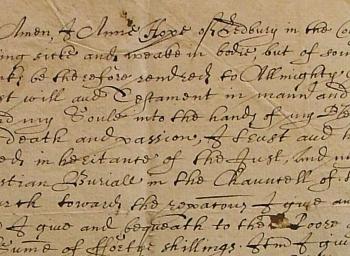 Amen, I Anne Hope of Ledbury in the Co
ing sicke and weake in bodie, but of sou
ks be therefore rendred to Allmighty
st will and Testament in mann and
d my Soule into the hands of my Ble
death and passion, I trust and h
ed inheritance of the Just, and
stian Buriall in the Chauncell of
urch towards the I give and
I give and bequeath to the Poore
Sume of ffortie shillings. Itm I giv